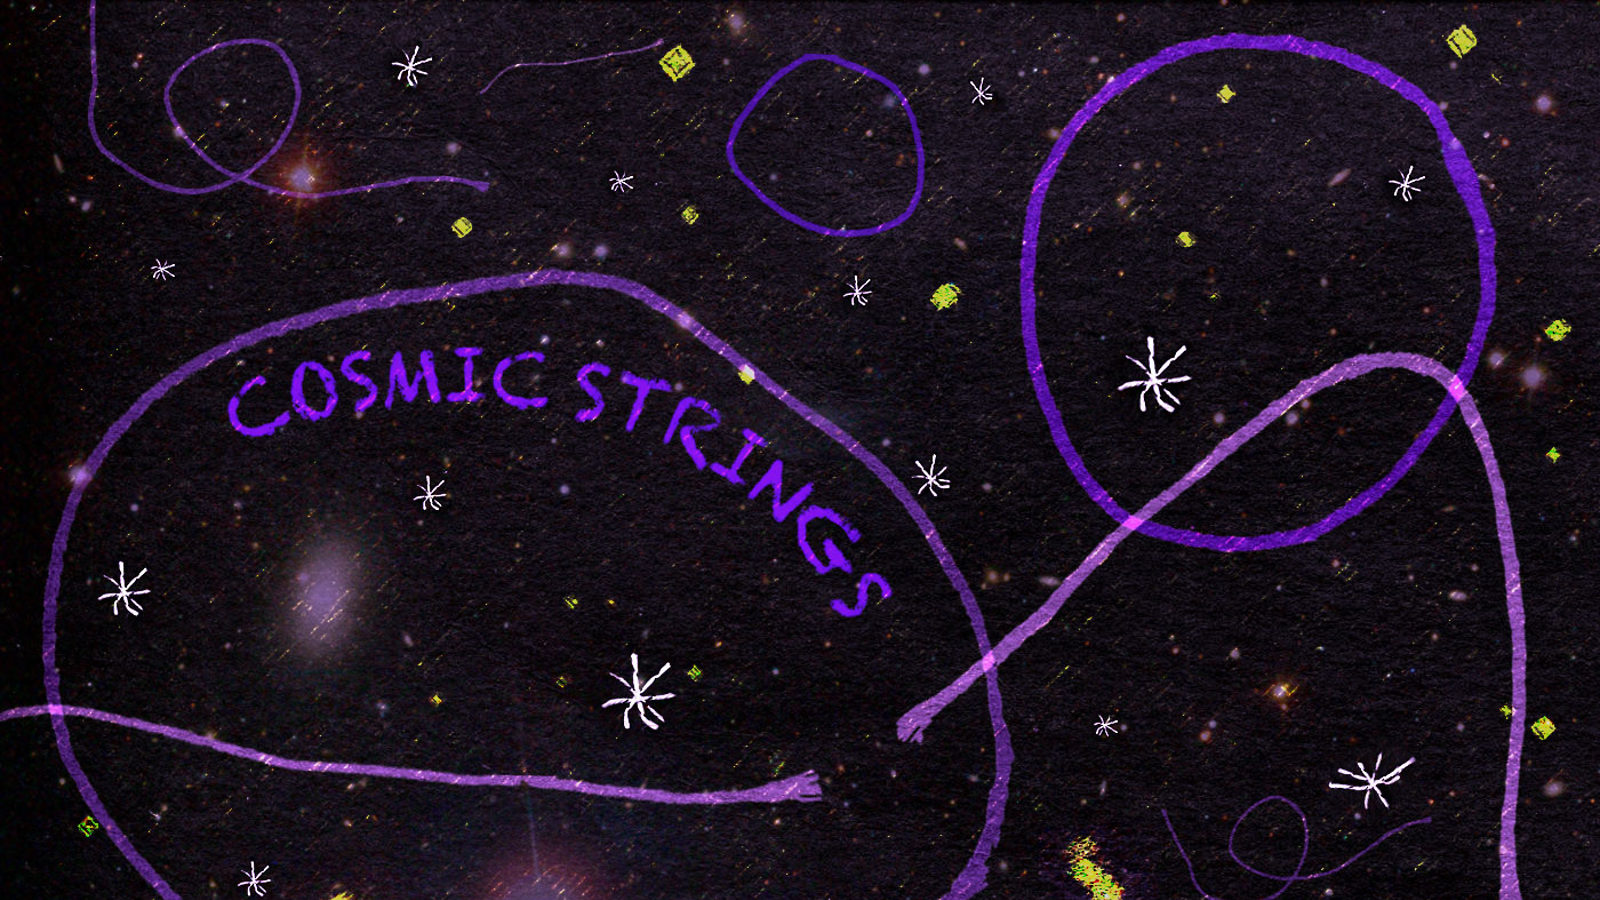 COSMIC STRINGS